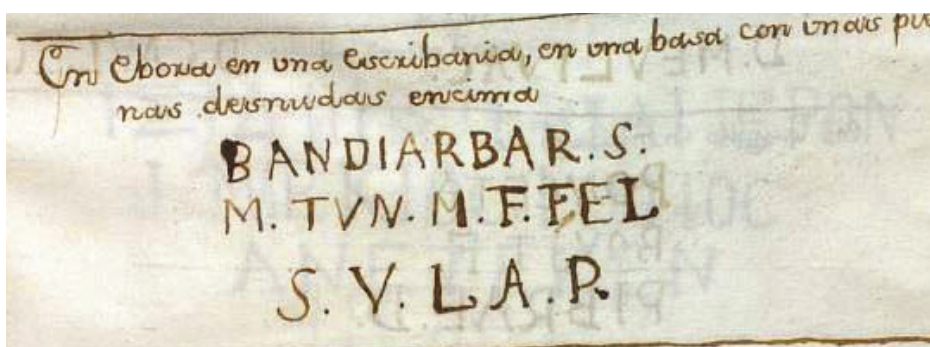 En Ebora en una Escribania, en una basa con unas pier
nas desnudas encima
BANDIARBAR. S.
M. TVN. M. F. FEL
S. V. L. A. P.